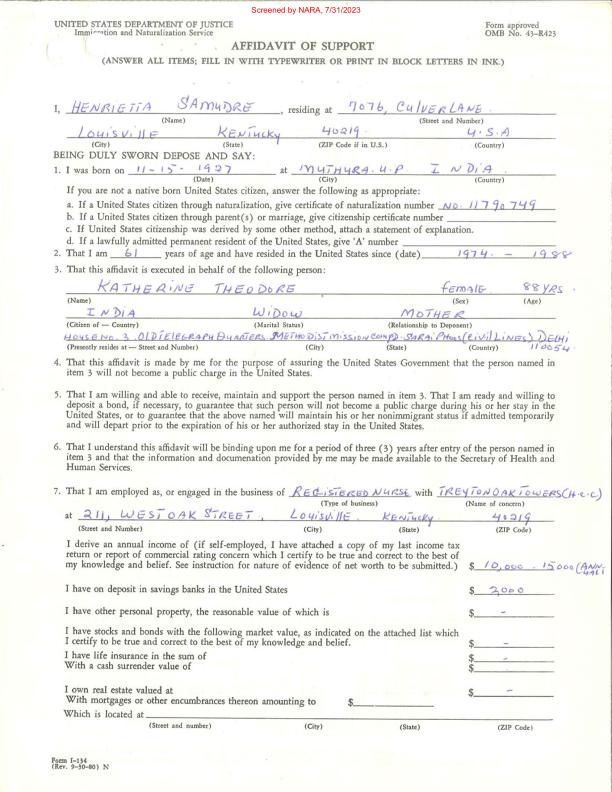 Screened by NARA, 7/31/2023
UNITED STATES DEPARTMENT OF JUSTICE
Immigration and Naturalization Service
Form approved
OMB No. 43-R423
AFFIDAVIT OF SUPPORT
(ANSWER ALL ITEMS; FILL IN WITH TYPEWRITER OR PRINT IN BLOCK LETTERS IN INK.)
I, HENRIETTA SAMUDRE, residing at 7076, CULVERLANE.
(Name) (Street and Number)
LOUISVILLE KENTUCKY 40219. U.S.A
(City) (State) (ZIP Code if in U.S.) (Country)
BEING DULY SWORN DEPOSE AND SAY:
1. I was born on 11-15-1927 at MUTHURA. U.P. INDIA.
(Date) (City) (Country)
If you are not a native born United States citizen, answer the following as appropriate:
a. If a United States citizen through naturalization, give certificate of naturalization number NO. 11790749
b. If a United States citizen through parent(s) or marriage, give citizenship certificate number
c. If United States citizenship was derived by some other method, attach a statement of explanation.
d. If a lawfully admitted permanent resident of the United States, give 'A' number
2. That I am 61 years of age and have resided in the United States since (date) 1974 - 1988
3. That this affidavit is executed in behalf of the following person:
KATHERINE THEODORE female 88 YRS.
(Name) (Sex) (Age)
INDIA WIDOW MOTHER
(Citizen of — Country) (Marital Status) (Relationship to Deponent)
HOUSE NO. 3. OLD TELEGRAPH QUARTERS METHODIST MISSION COMPD. SARAI PHOOS (CIVIL LINES) DELHI 110054
(Presently resides at — Street and Number) (City) (State) (Country)
4. That this affidavit is made by me for the purpose of assuring the United States Government that the person named in
item 3 will not become a public charge in the United States.
5. That I am willing and able to receive, maintain and support the person named in item 3. That I am ready and willing to
deposit a bond, if necessary, to guarantee that such person will not become a public charge during his or her stay in the
United States, or to guarantee that the above named will maintain his or her nonimmigrant status if admitted temporarily
and will depart prior to the expiration of his or her authorized stay in the United States.
6. That I understand this affidavit will be binding upon me for a period of three (3) years after entry of the person named in
item 3 and that the information and documenation provided by me may be made available to the Secretary of Health and
Human Services.
7. That I am employed as, or engaged in the business of REGISTERED NURSE with TREYTON OAK TOWERS (H.C.C)
(Type of business) (Name of concern)
at 211, WEST OAK STREET, LOUISVILLE. KENTUCKY. 40219
(Street and Number) (City) (State) (ZIP Code)
I derive an annual income of (if self-employed, I have attached a copy of my last income tax
return or report of commercial rating concern which I certify to be true and correct to the best of
my knowledge and belief. See instruction for nature of evidence of net worth to be submitted.) $ 10,000 - 15000 (ANNUALLY
I have on deposit in savings banks in the United States $ 2,000
I have other personal property, the reasonable value of which is $ -
I have stocks and bonds with the following market value, as indicated on the attached list which
I certify to be true and correct to the best of my knowledge and belief. $ -
I have life insurance in the sum of $ -
With a cash surrender value of $
I own real estate valued at $ -
With mortgages or other encumbrances thereon amounting to $
Which is located at
(Street and number) (City) (State) (ZIP Code)
Form I-134
(Rev. 9-30-80) N